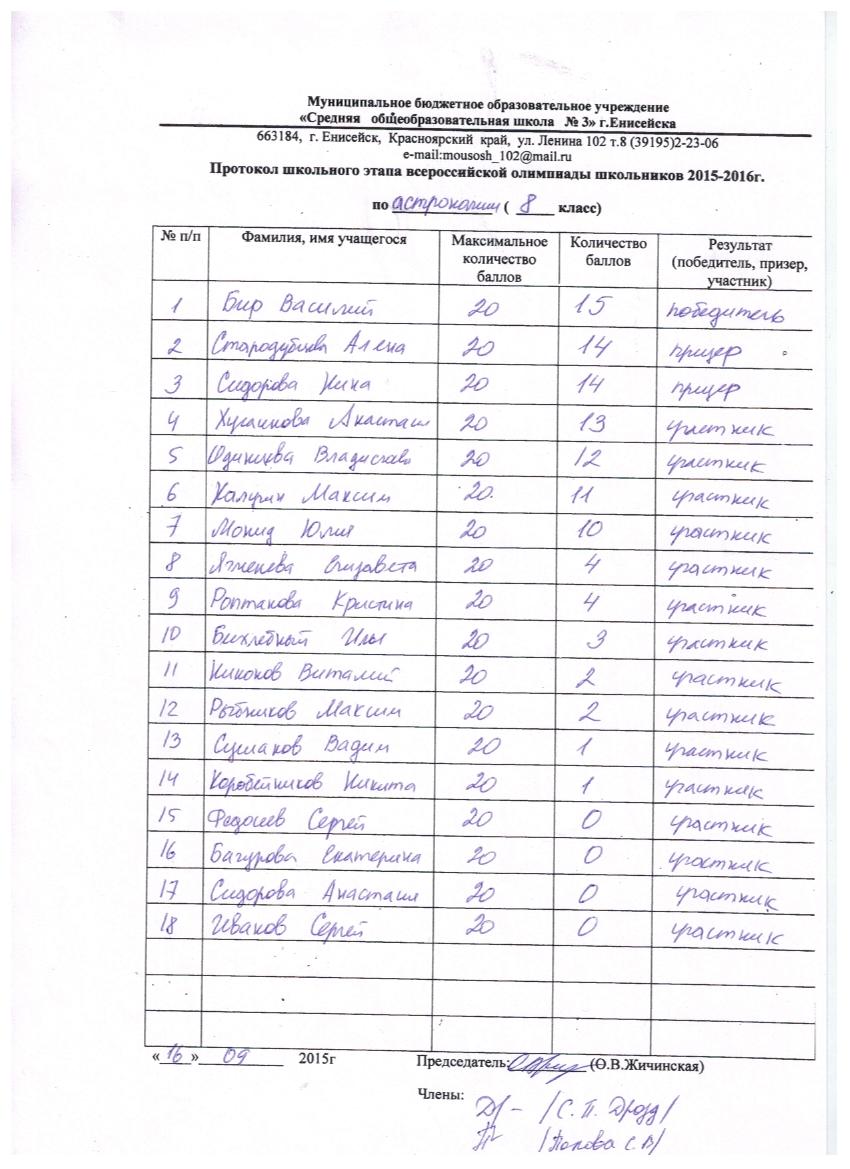 Муниципальное бюджетное образовательное учреждение
«Средняя общеобразовательная школа № 3» г.Енисейска
663184, г. Енисейск, Красноярский край, ул. Ленина 102 т.8 (39195)2-23-06
e-mail:mousosh_102@mail.ru
Протокол школьного этапа всероссийской олимпиады школьников 2015-2016г.
по астрономии ( 8 класс)
№ п/п Фамилия, имя учащегося Максимальное количество баллов Количество баллов Результат (победитель, призер, участник)
1 Бир Василий 20 15 победитель
2 Стародубцева Алена 20 14 призер
3 Сидорова Нина 20 14 призер
4 Анастасия 20 13 участник
5 Одинцева Владислава 20 12 участник
6 Максим 20 11 участник
7 Юлия 20 10 участник
8 Елизавета 20 4 участник
9 Кристина 20 4 участник
10 Илья 20 3 участник
11 Никонов Виталий 20 2 участник
12 Рыбников Максим 20 2 участник
13 Вадим 20 1 участник
14 Коробейников Никита 20 1 участник
15 Федосеев Сергей 20 0 участник
16 Багурова Екатерина 20 0 участник
17 Сидорова Анастасия 20 0 участник
18 Иванов Сергей 20 0 участник
«16» 09 2015г Председатель: (О.В.Жичинская)
Члены:
/С. П. Дрозд/
/Попова С.В/